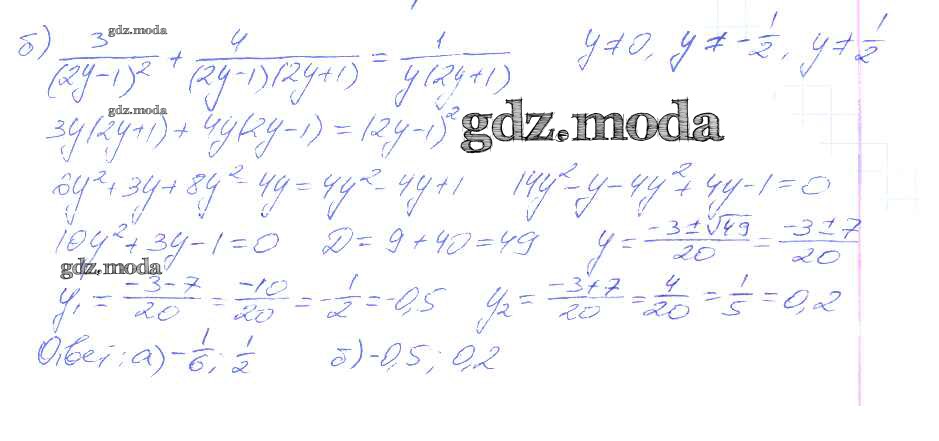 б) 3/(2y-1)² + 4/((2y-1)(2y+1)) = 1/(y(2y+1))   y ≠ 0, y ≠ -1/2, y ≠ 1/2
gdz.moda
3y(2y+1) + 4y(2y-1) = (2y-1)²
gdz.moda
gdz.moda
6y² + 3y + 8y² - 4y = 4y² - 4y + 1   14y² - y - 4y² + 4y - 1 = 0
10y² + 3y - 1 = 0   D = 9 + 40 = 49   y = (-3 ± √49)/20 = (-3 ± 7)/20
gdz.moda
y₁ = (-3-7)/20 = -10/20 = -1/2 = -0,5   y₂ = (-3+7)/20 = 4/20 = 1/5 = 0,2
Ответ: а) -1/6; 1/2   б) -0,5; 0,2